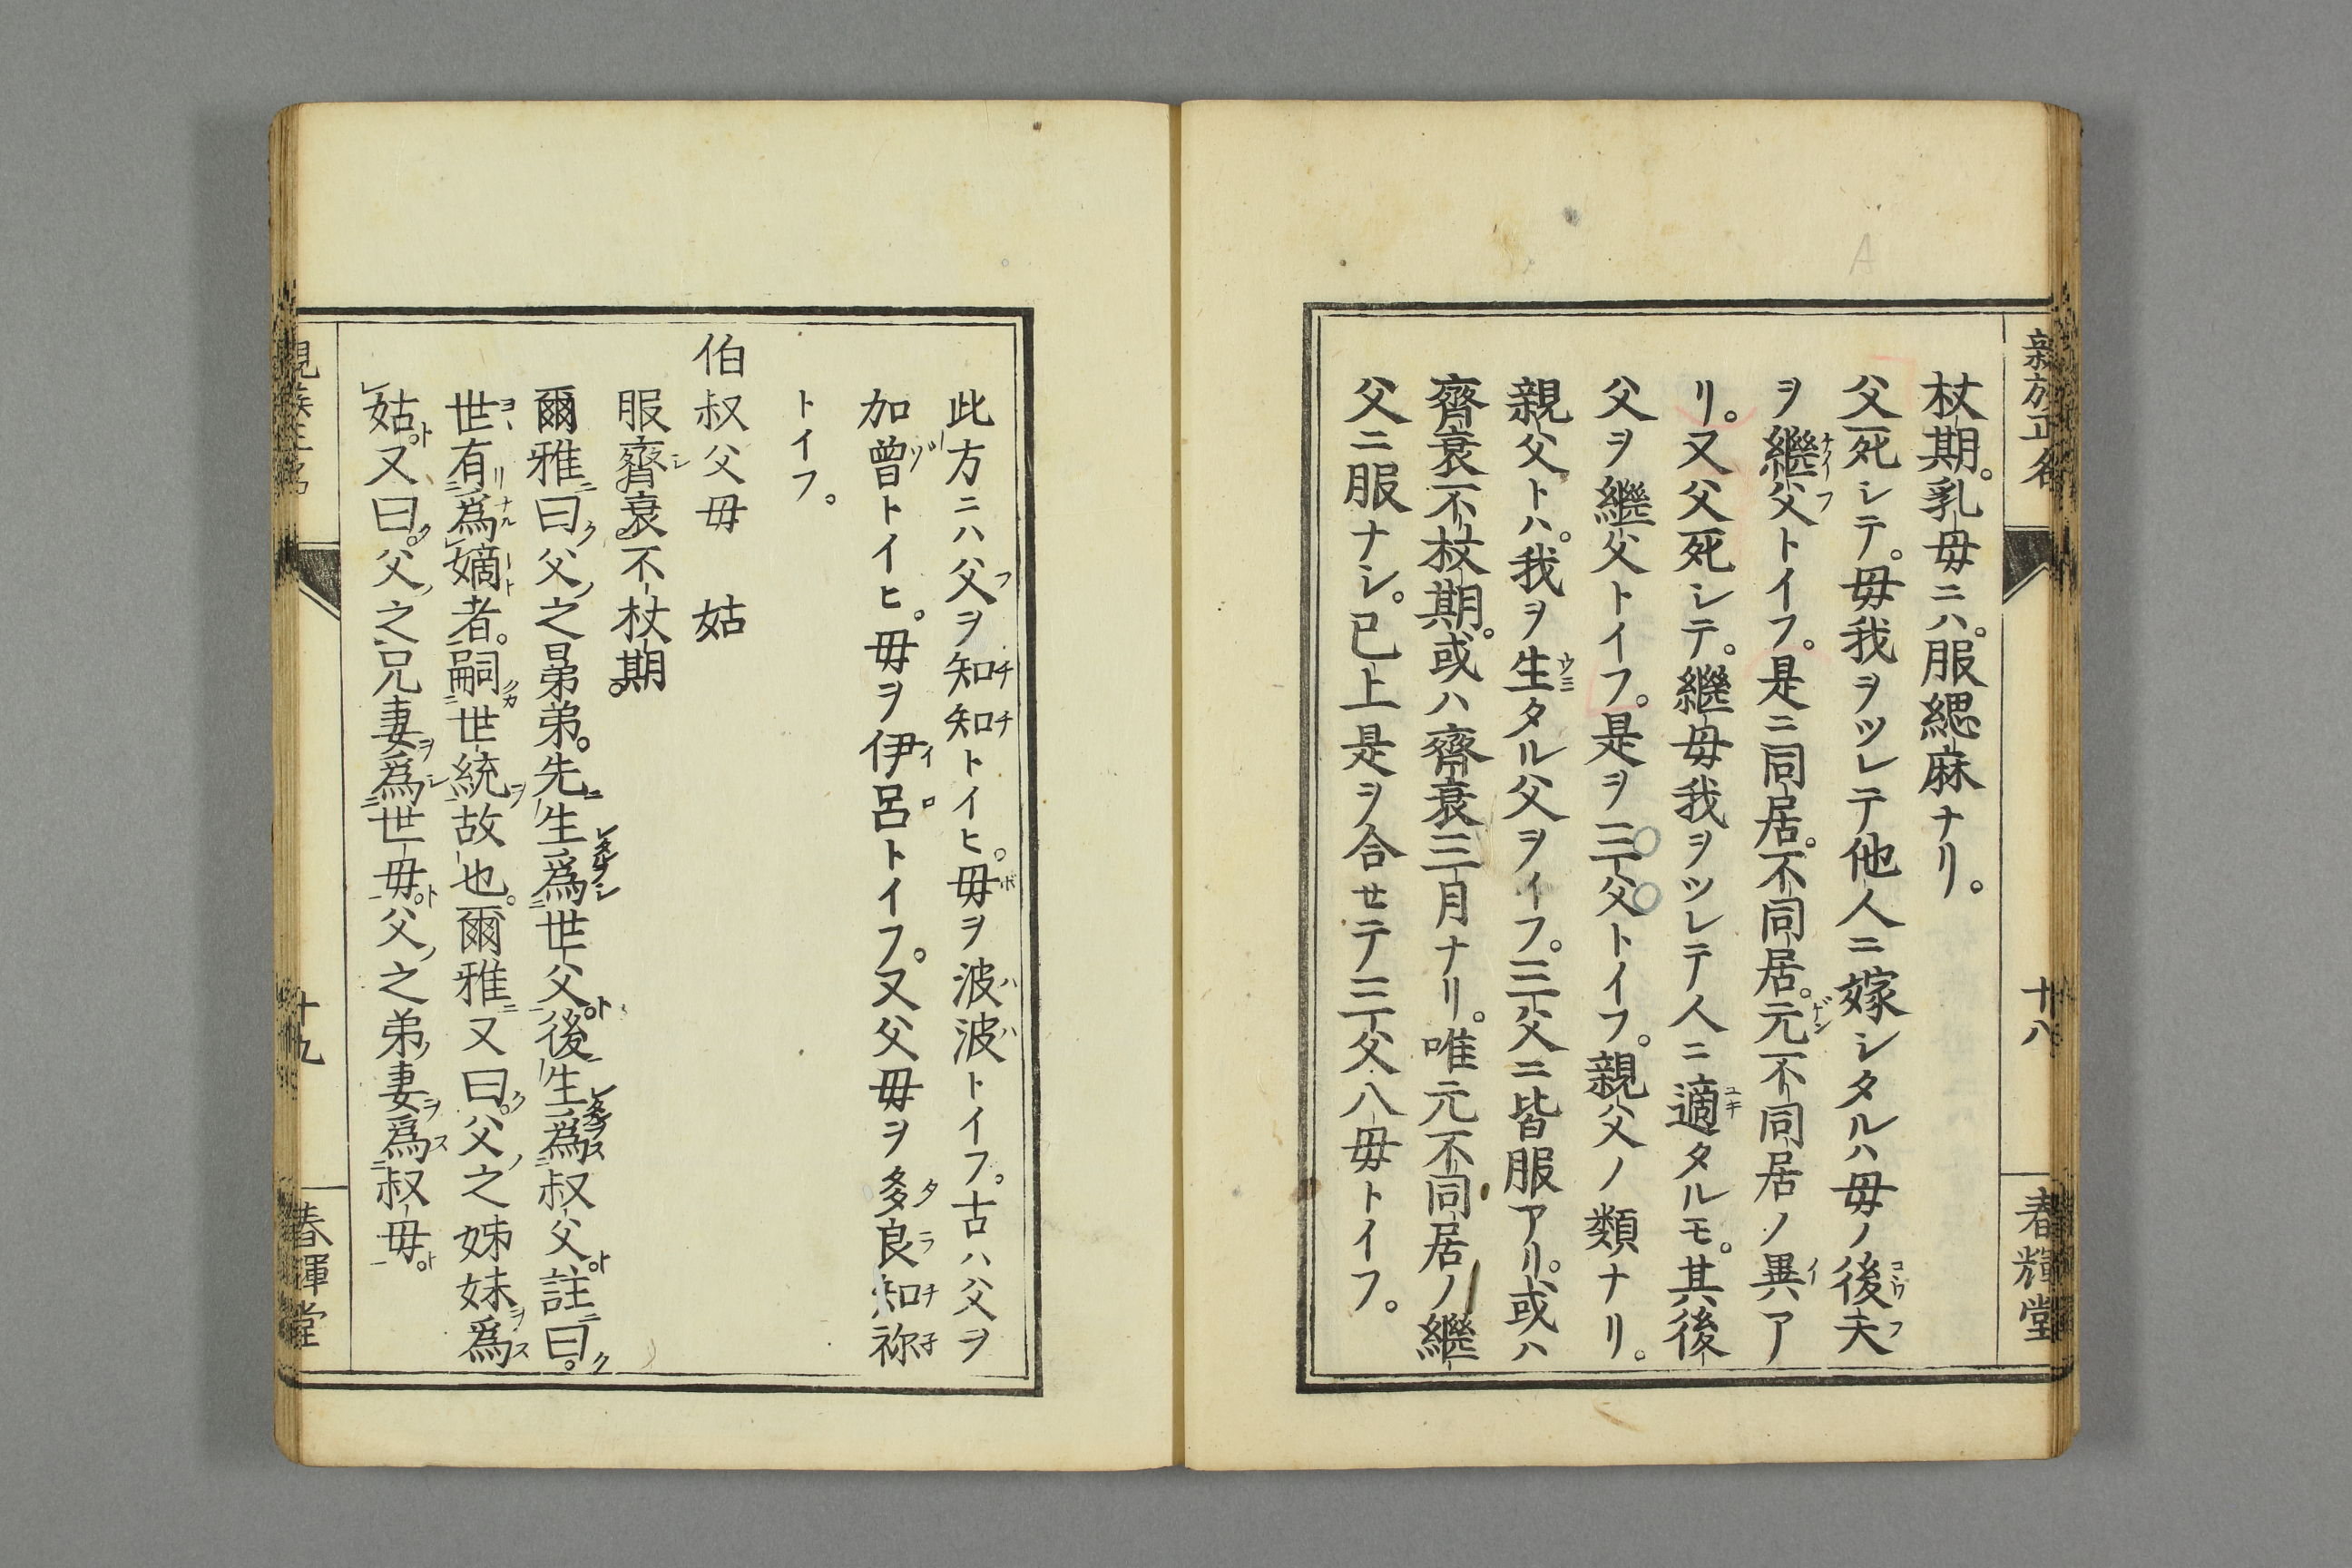 親族正名
十八
春輝堂
杖期。乳母ニハ。服緦麻ナリ。
父死シテ。母我ヲツレテ他人ニ嫁シタルハ母ノ後夫
ヲ繼父トイフ。是ニ同居。不同居。元不同居ノ異ア
リ。又父死シテ。繼母我ヲツレテ人ニ適タルモ。其後
父ヲ繼父トイフ。是ヲ三父トイフ。親父ノ類ナリ。
親父トハ。我ヲ生タル父ヲイフ。三父ニ皆服アリ。或ハ
齊衰不杖期。或ハ齊衰三月ナリ。唯元不同居ノ繼
父ニ服ナシ。已上是ヲ合セテ三父八母トイフ。
此方ニハ父ヲ知知トイヒ。母ヲ波波トイフ。古ハ父ヲ
加曾トイヒ。母ヲ伊呂トイフ。又父母ヲ多良知祢
トイフ。
伯叔父母　姑
服齊衰不杖期。
爾雅曰父之晜弟。先生爲世父。後生爲叔父。註曰。
世有爲嫡者。嗣世統故也。爾雅又曰。父之姊妹爲
姑。又曰。父之兄妻爲世母。父之弟妻爲叔母。
親族正名
十九
春輝堂